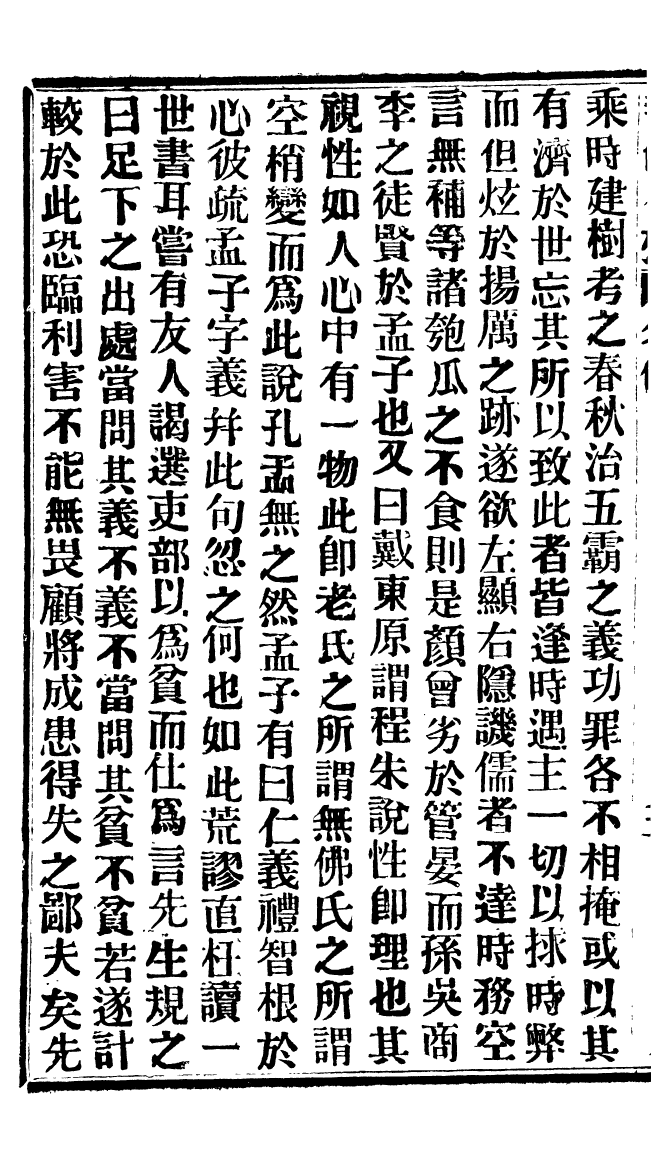 乘時建樹考之春秋治五霸之義功罪各不相掩或以其
有濟於世忘其所以致此者皆逢時遇主一切以捄時弊
而但炫於揚厲之跡遂欲左顯右隱譏儒者不達時務空
言無補等諸匏瓜之不食則是顏曾劣於管晏而孫吳商
李之徒賢於孟子也又曰戴東原謂程朱說性卽理也其
視性如人心中有一物此卽老氏之所謂無佛氏之所謂
空稍變而爲此說孔孟無之然孟子有曰仁義禮智根於
心彼疏孟子字義幷此句忽之何也如此荒謬直枉讀一
世書耳嘗有友人謁選吏部以爲貧而仕爲言先生規之
曰足下之出處當問其義不義不當問其貧不貧若遂計
較於此恐臨利害不能無畏顧將成患得失之鄙夫矣先